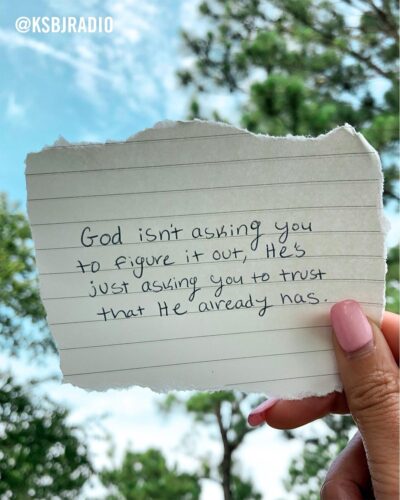 @KSBJRADIO
God isn't asking you
to figure it out, He's
just asking you to trust
that He already has.